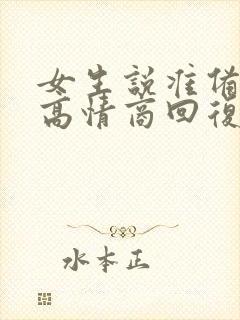 女生說准備
高情商回復
水本正